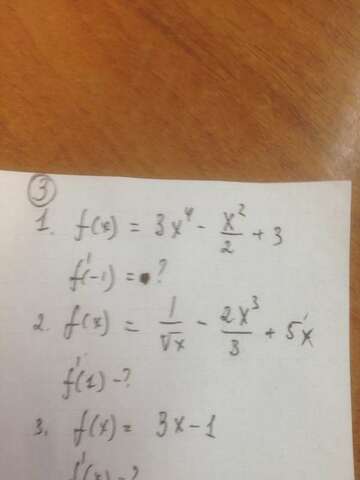 3
1. f(x) = 3x⁴ - x²/2 + 3
f'(-1) = ?
2. f(x) = 1/√x - 2x³/3 + 5x
f'(1) - ?
3. f(x) = 3x - 1
f'(x) - ?